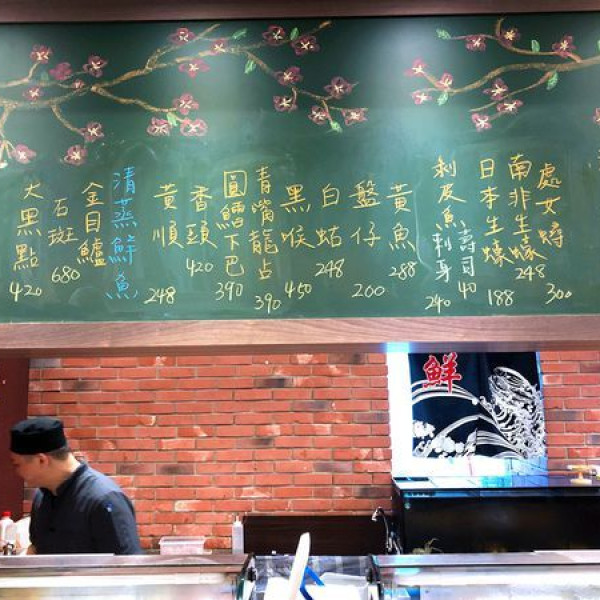 處女蟳 300
南非生蠔 248
日本生蠔 188
壽司 40
剝皮魚刺身 240
黃魚 288
盤仔 200
白姑 248
黑喉 450
青嘴龍占 390
圓鱈下巴 390
香頭 420
黃順 248
清蒸鮮魚
金目鱸
石斑 680
大黑點 420
鮮